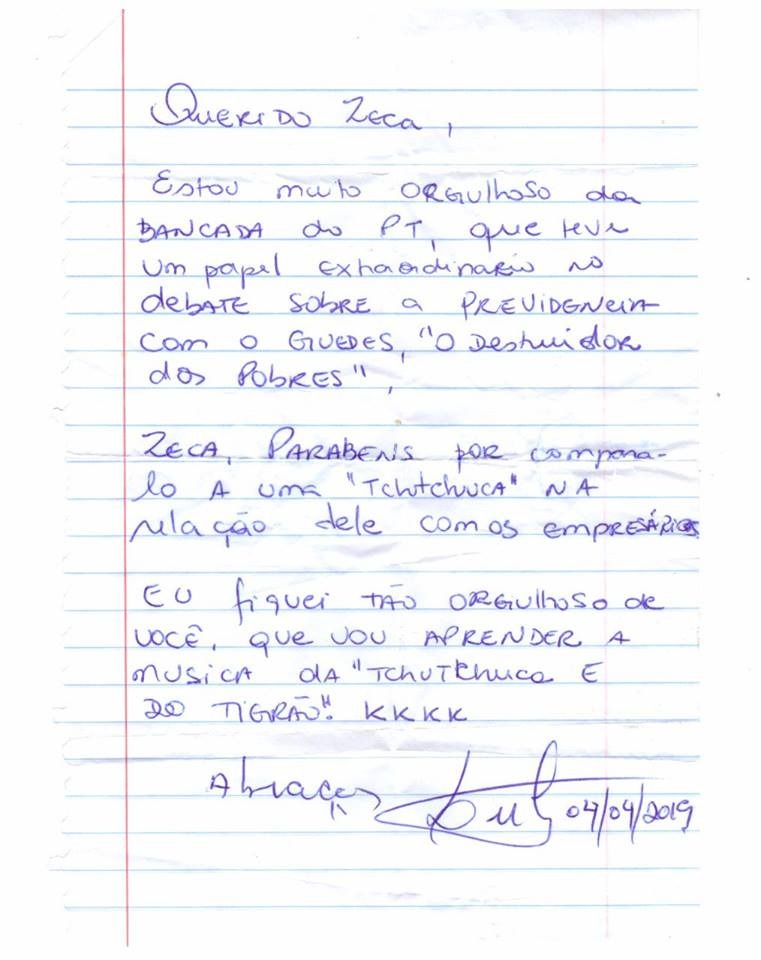 Querido Zeca,
Estou muito orgulhoso da
bancada do PT, que teve
um papel extraordinario no
debate sobre a Previdencia
com o Guedes, "o destruidor
dos pobres",
Zeca, Parabens por compara-
lo a uma "Tchutchuca" na
relação dele com os empresários
Eu fiquei tão orgulhoso de
você, que vou aprender a
musica da "Tchutchuca e
do Tigrão". KKKK
Abraços 04/04/2019